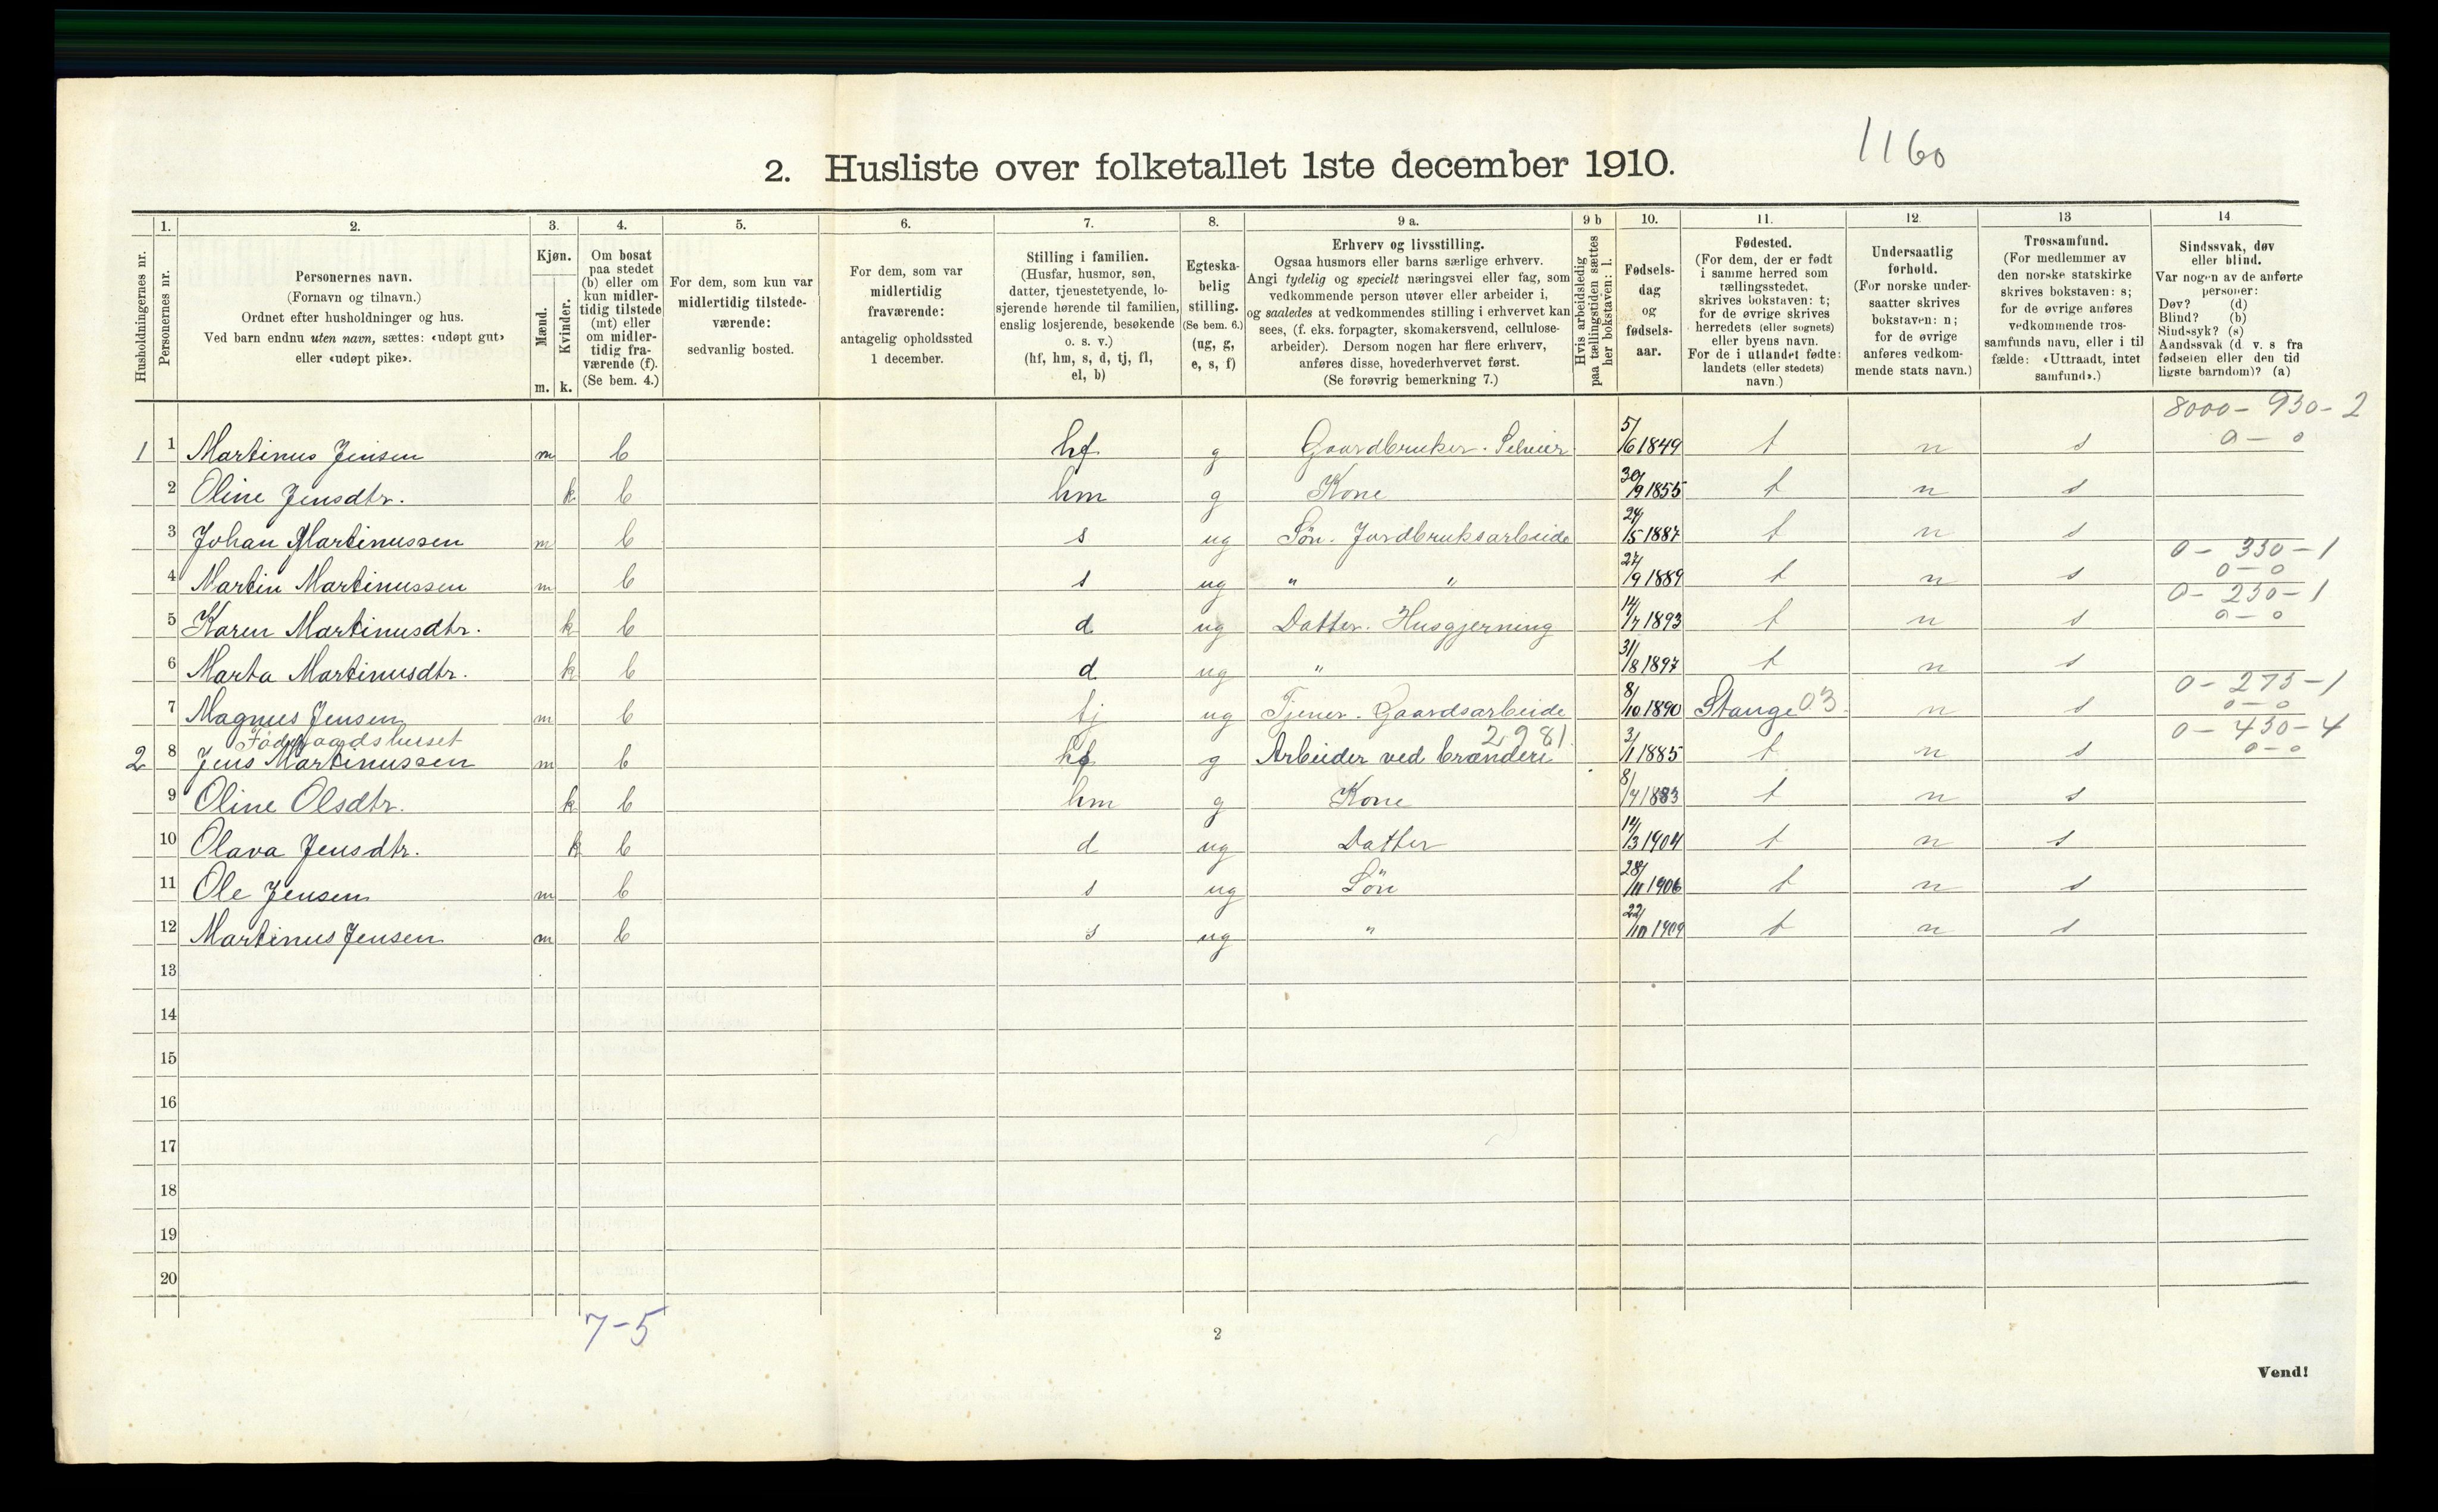 1160
2. Husliste over folketallet 1ste december 1910.
Husholdningernes nr.
1. Personernes nr.
2. Personernes navn.
(Fornavn og tilnavn.)
Ordnet efter husholdninger og hus.
Ved barn endnu uten navn, sættes: «udøpt gut»
eller «udøpt pike».
3. Kjøn.
Mænd. m.
Kvinder. k.
4. Om bosat
paa stedet
(b) eller om
kun midler-
tidig tilstede
(mt) eller
om midler-
tidig fra-
værende (f).
(Se bem. 4.)
5. For dem, som kun var
midlertidig tilstede-
værende:
sedvanlig bosted.
6. For dem, som var
midlertidig
fraværende:
antagelig opholdssted
1 december.
7. Stilling i familien.
(Husfar, husmor, søn,
datter, tjenestetyende, lo-
sjerende hørende til familien,
enslig losjerende, besøkende
o. s. v.)
(hf, hm, s, d, tj, fl,
el, b)
8. Egteska-
belig
stilling.
(Se bem. 6.)
(ug, g,
e, s, f)
9 a. Erhverv og livsstilling.
Ogsaa husmors eller barns særlige erhverv.
Angi tydelig og specielt næringsvei eller fag, som
vedkommende person utøver eller arbeider i,
og saaledes at vedkommendes stilling i erhvervet kan
sees, (f. eks. forpagter, skomakersvend, cellulose-
arbeider). Dersom nogen har flere erhverv,
anføres disse, hovederhvervet først.
(Se forøvrig bemerkning 7.)
9 b Hvis arbeidsledig
paa tællingstiden sættes
her bokstaven: l.
10. Fødsels-
dag
og
fødsels-
aar.
11. Fødested.
(For dem, der er født
i samme herred som
tællingsstedet,
skrives bokstaven: t;
for de øvrige skrives
herredets (eller sognets)
eller byens navn.
For de i utlandet fødte:
landets (eller stedets)
navn.)
12. Undersaatlig
forhold.
(For norske under-
saatter skrives
bokstaven: n;
for de øvrige
anføres vedkom-
mende stats navn.)
13 Trossamfund.
(For medlemmer av
den norske statskirke
skrives bokstaven: s;
for de øvrige anføres
vedkommende tros-
samfunds navn, eller i til
fælde: «Uttraadt, intet
samfund».)
14 Sindssvak, døv
eller blind.
Var nogen av de anførte
personer:
Døv? (d)
Blind? (b)
Sindssyk? (s)
Aandssvak (d. v. s. fra
fødselen eller den tid
ligste barndom)? (a)
8000 - 930 - 2
1 1 Martinus Jensen m b hf g Gaardbruker. Selveier 5/6 1849 t n s 0 - 0
2 Oline Jensdtr. k b hm g Kone 30/9 1855 t n s
3 Johan Martinussen m b s ug Søn. Jordbruksarbeide 24/5 1887 t n s
0 - 330 - 1
4 Martin Martinussen m b s ug " " 27/9 1889 t n s 0 - 0
0 - 230 - 1
5 Karen Martinusdtr. k b d ug Datter. Husgjerning 14/7 1893 t n s 0 - 0
6 Marta Martinusdtr. k b d ug " 31/8 1897 t n s
0 - 275 - 1
7 Magnus Jensen m b tj ug Tjener. Gaardsarbeide 8/10 1890 Stange 03 n s 0 - 0
2981
0 - 430 - 4
2 8 Jens Martinussen m b hf g Arbeider ved brænderi 3/1 1885 t n s 0 - 0
9 Oline Olsdtr. k b hm g Kone 8/7 1883 t n s
10 Olava Jensdtr. k b d ug Datter 14/3 1904 t n s
11 Ole Jensen m b s ug Søn 28/11 1906 t n s
12 Martinus Jensen m b s ug " 22/10 1909 t n s
13
14
15
16
17
18
19
20
7-5
2
Vend!